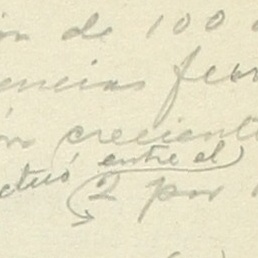 ón de 100
encias fer
ón creciente
ctuó entre el
2 por